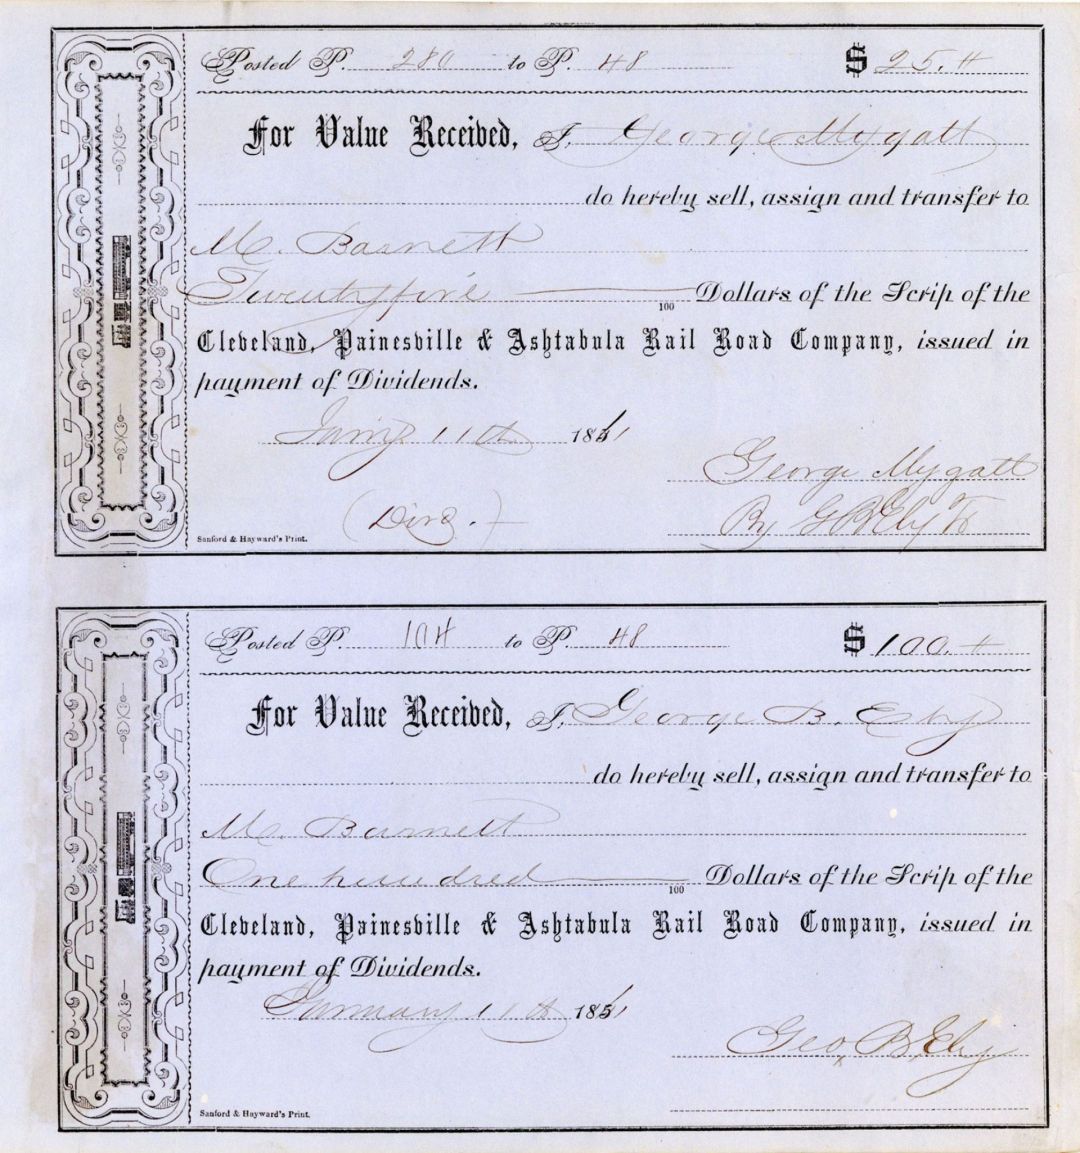 Posted P. 280 to P. 48 $ 25.
For Value Received, I, George Mygatt
do hereby sell, assign and transfer to
M. Barnett
Twenty five 100 Dollars of the Scrip of the
Cleveland, Painesville & Ashtabula Rail Road Company, issued in
payment of Dividends.
11th 1861
George Mygatt
(Divd.)
By G B Ely
Sanford & Hayward's Print.
Posted P. 104 to P. 48 $ 100.
For Value Received, I, George B. Ely
do hereby sell, assign and transfer to
M. Barnett
One hundred 100 Dollars of the Scrip of the
Cleveland, Painesville & Ashtabula Rail Road Company, issued in
payment of Dividends.
January 11th 1861
Geo. B. Ely
Sanford & Hayward's Print.